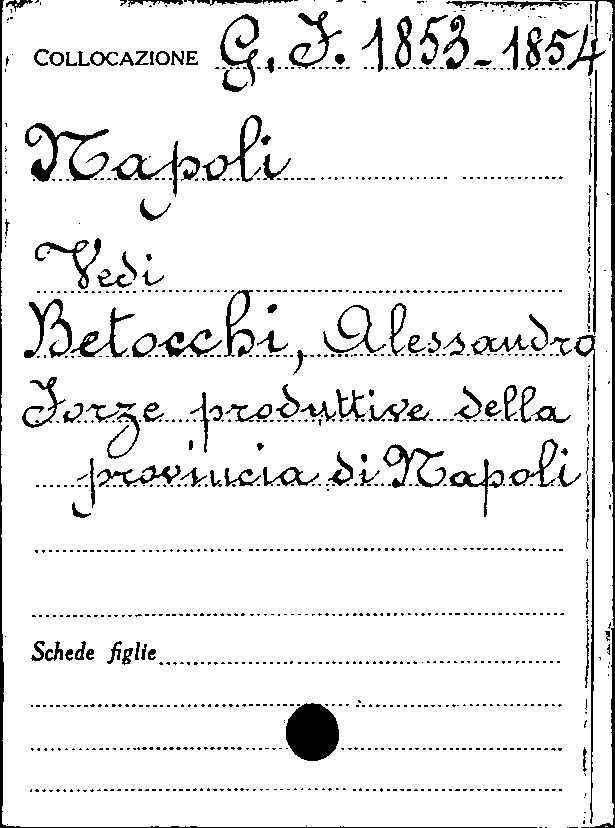 COLLOCAZIONE G. F. 1853-1854
Napoli
Vedi
Betocchi, Alessandro
Forze produttive della
provincia di Napoli
Schede figlie